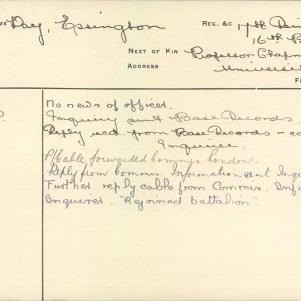 Day, Essington
REG. &c 17th
16th B
NEXT OF KIN Professor Chapm
ADDRESS Universit
No news of officer.
Inquiry sent Base Records.
Reply recd from Base Records - co
Inquirer.
P/Cable forwarded Commrs London.
Reply from Commrs. Information sent Inqu
Further reply cable from Commrs. Info
Enquirer. "Rejoined battalion".